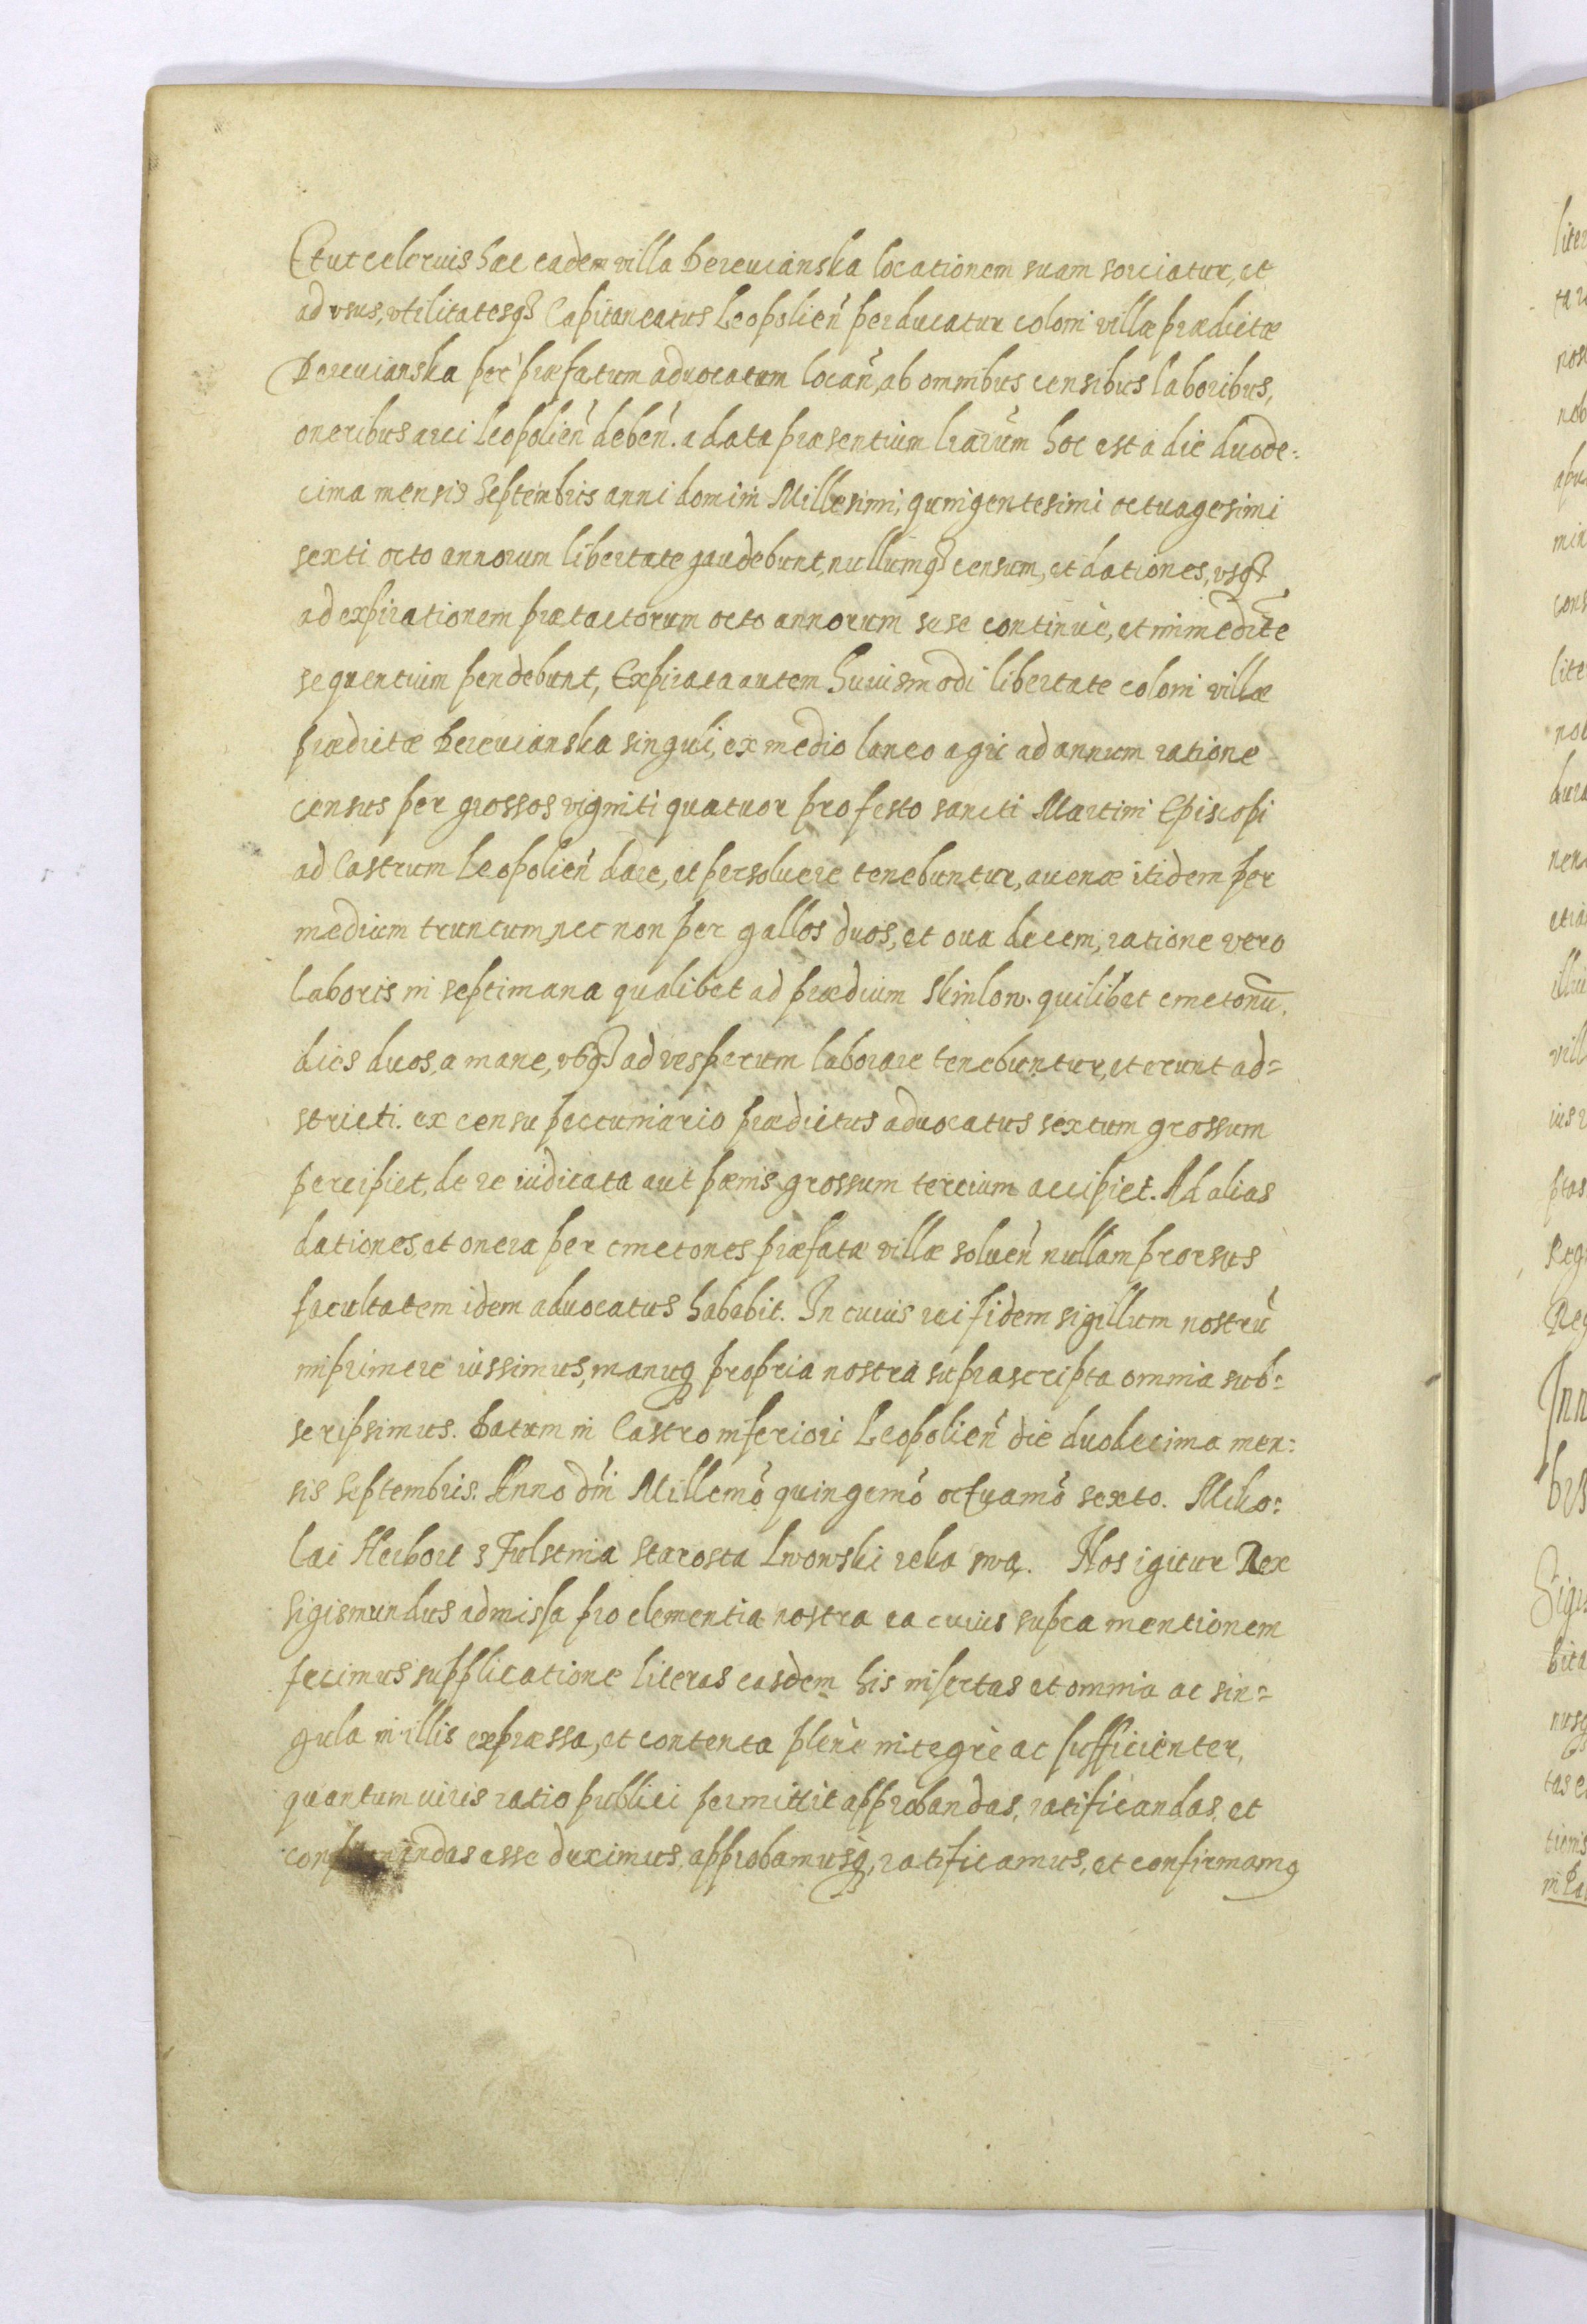 Et ut celervis hæc eadem villa Derewianska locationem suam sorciatur, et
ad vsus, vtilitatesq3 Capitaneatus Leopolien̄ perducatur coloni villæ prædictæ
Derewianska per præfatum aduocatum locan̄, ab omnibus censibus laboribus,
oneribus arci Leopolien̄ deben̄. a data præsentium lrārūm hoc est a die duode:
cima mensis Septembris anni domini Millesimi, quingentesimi octuagesimi
sexti octo annorum libertate gaudebunt, nullumq3 censum, et dationes, vsq3
ad expirationem prætactorum octo annorum se se continuè, et immediāte
sequentium pendebunt, Expirata autem huiusmodi libertate coloni villæ
prædictæ Derewianska singuli, ex medio laneo agri ad annum ratione
census per grossos viginti quatuor pro festo sancti Martini Episcopi
ad Castrum Leopolien̄ dare, et persoluere tenebuntur, auenæ itidem per
medium truncum, nec non per gallos duos, et oua decem, ratione vero
laboris in septimana qualibet ad prædium Skinlow. quilibet cmetonū,
dies duos, a mane, vsq3 ad vesperum laborare tenebuntur, et erunt ad=
stricti. ex censu pecuniario prædictus aduocatus sextum grossum
percipiet, de re iudicata aut pænis grossum tercium accipiet. Ad alias
dationes, et onera per cmetones præfatæ villæ soluen̄ nullam prorsus
facultatem idem aduocatus habebit. In cuius rei fidem sigillum nostrū
imprimere iussimus, manuq3 propria nostra suprascripta omnia sub=
scripsimus. Datum in Castro inferiori Leopolien̄ die duodecima men:
sis Septembris. Anno dn̄i Millemō quingemō octuamō sexto. Miko:
lai Herbort z Fulstina Starosta Lwowski reka swą. Nos igitur Rex
Sigismundus admissa pro clementia nostra ea cuius supra mentionem
fecimus supplicatione literas easdem his insertas et omnia ac sin=
gula in illis expressa, et contenta plenè integrè ac sufficienter,
quantum iuris ratio publici permittit approbandas, ratificandas, et
confirmandas esse duximus, approbamusq3, ratificamus, et confirmamq